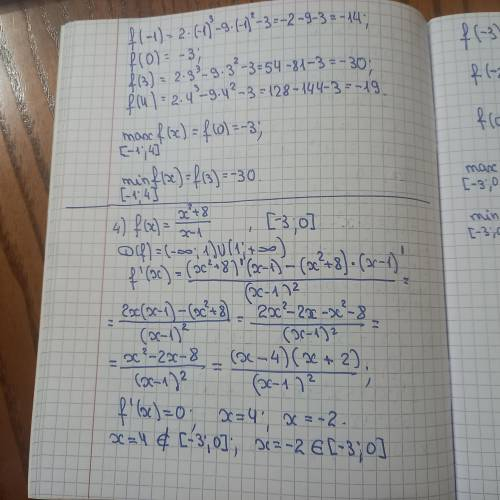 f(-1) = 2·(-1)³-9·(-1)²-3=-2-9-3=-14;
f(0) = -3;
f(3) = 2·3³-9·3²-3=54-81-3=-30;
f(4)=2·4³-9·4²-3=128-144-3=-19.
max f(x)=f(0)=-3;
[-1;4]
min f(x)=f(3)=-30.
[-1;4]
4) f(x)= (x²+8)/(x-1), [-3;0]
D(f)=(-∞;1)∪(1;+∞)
f'(x)= ((x²+8)'(x-1)-(x²+8)·(x-1)')/(x-1)² =
= (2x(x-1)-(x²+8))/(x-1)² = (2x²-2x-x²-8)/(x-1)² =
= (x²-2x-8)/(x-1)² = ((x-4)(x+2))/(x-1)²;
f'(x)=0; x=4; x=-2.
x=4 ∉ [-3;0]; x=-2 ∈ [-3;0]
f(-3)
f(-2
f(0
max
[-3;0
min
[-3;0